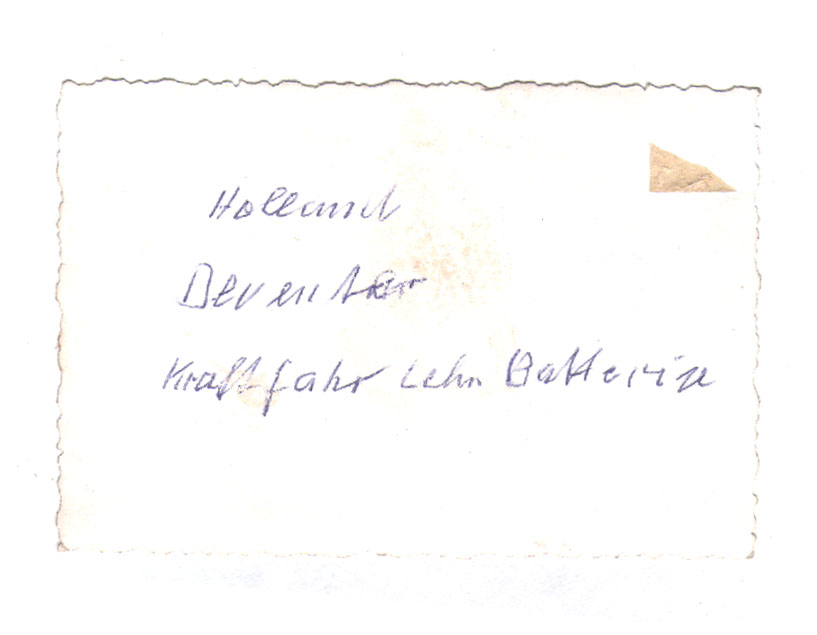 Holland
Deventer
Kraftfahr Lehr Batterie